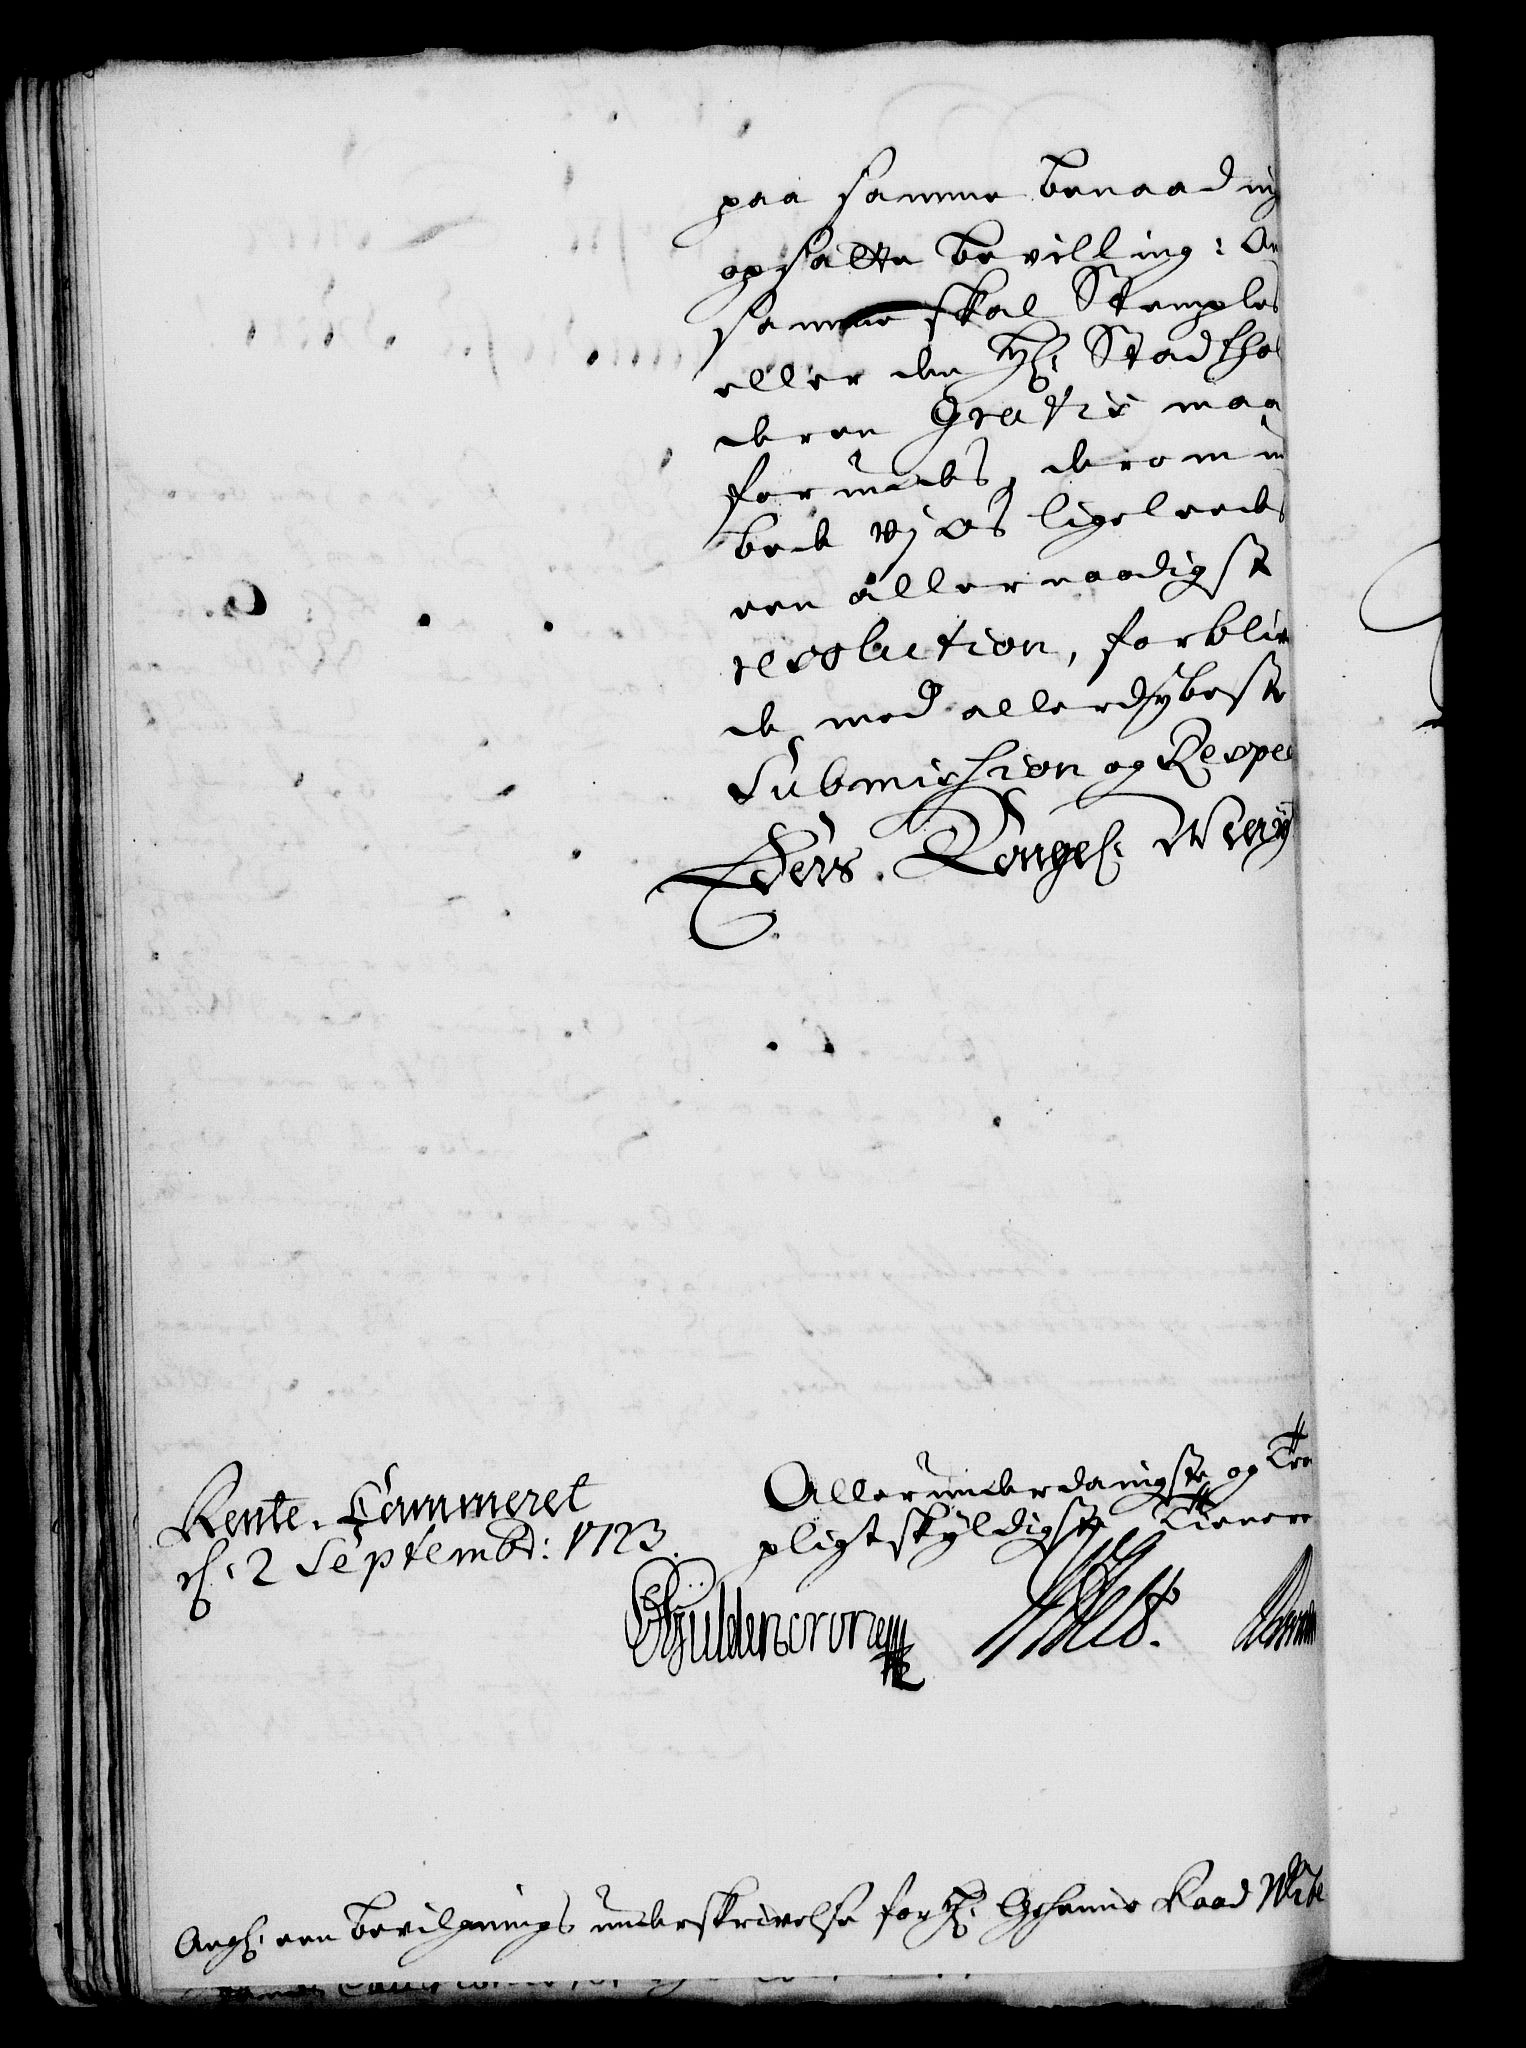 paa samme benaading
opsatte bevilling: Om
samme skal Stemples
eller den Hr: Stadthol
deren Gratis maa
forundes, derom ud
bede Vj os ligeleedes
een allernaadigst
resolution, forbliv
de med allerdybeste
Submission og Respec
Eders. Kongel: May
Rente-Cammeret
d: 2 Septembr: 1723.
Allerunderdanigste og Troe
pligtskyldigste Tienere
Gyldencrone
Ang: een bevilgnings underskrivelse for Hr: Geheime Raad Wibe